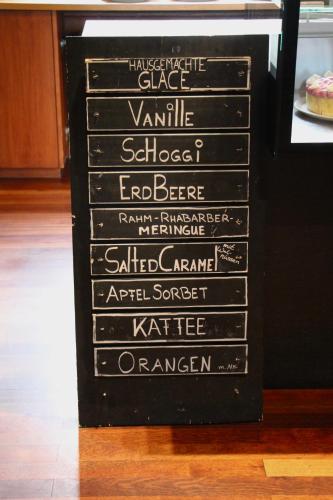 HAUSGEMACHTE
GLACE
VANiLLE
ScHoGGi
ERDBEERE
RAHM-RHABARBER-
MERINGUE
SALTED CARAMEL mit
APFELSORBET
KAFFEE
ORANGEN